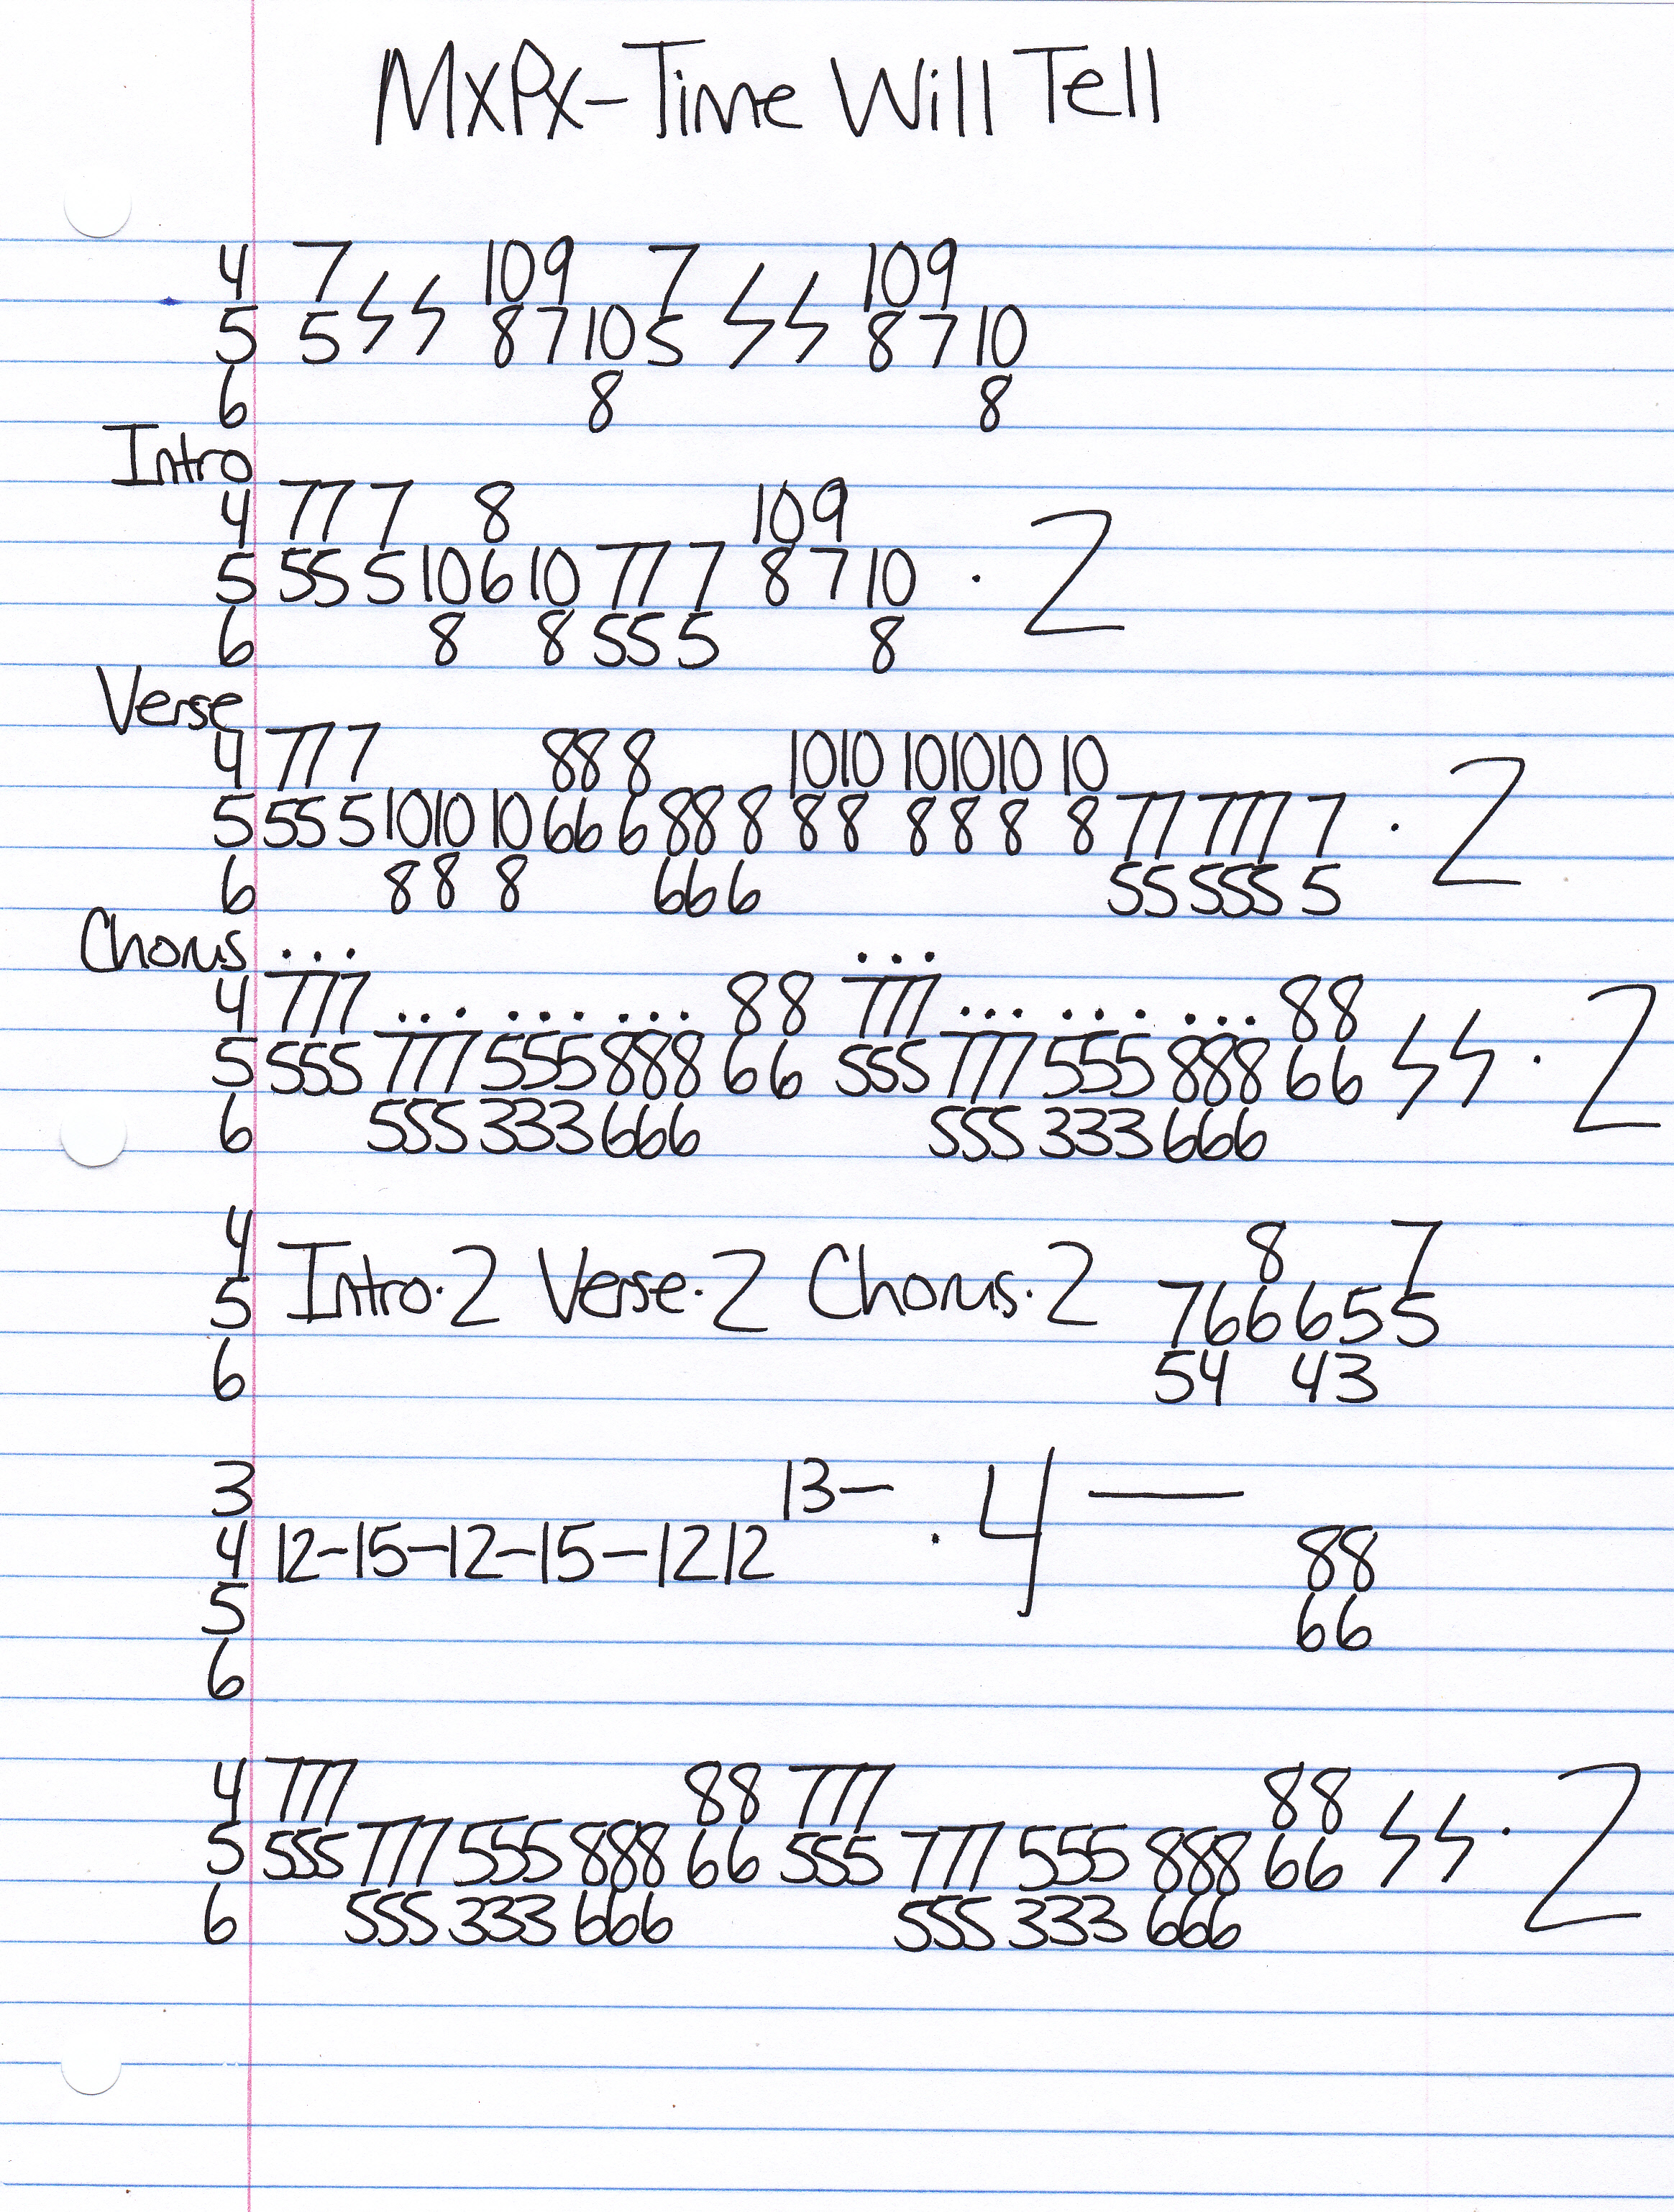 MxPx-Time Will Tell
4 7 10 9 7 10 9
5 5 ϟ ϟ 8 7 10 5 ϟ ϟ 8 7 10
6 8 8
Intro
4 7 7 7 8 10 9
5 5 5 5 10 6 10 7 7 7 8 7 10 · 2
6 8 8 5 5 5 8
Verse
4 7 7 7 8 8 8 10 10 10 10 10 10
5 5 5 5 10 10 10 6 6 6 8 8 8 8 8 8 8 8 8 7 7 7 7 7 7 · 2
6 8 8 8 6 6 6 5 5 5 5 5 5
Chorus . . . . . .
4 7 7 7 . . . . . . . . . 8 8 7 7 7 . . . . . . . . . 8 8
5 5 5 5 7 7 7 5 5 5 8 8 8 6 6 5 5 5 7 7 7 5 5 5 8 8 8 6 6 ϟ ϟ · 2
6 5 5 5 3 3 3 6 6 6 5 5 5 3 3 3 6 6 6
4 8 7
5 Intro·2 Verse·2 Chorus·2 7 6 6 6 5 5
6 5 4 4 3
3 13— · 4 —
4 12-15-12-15-12 12 8 8
5 6 6
6
4 7 7 7 8 8 7 7 7 8 8
5 5 5 5 7 7 7 5 5 5 8 8 8 6 6 5 5 5 7 7 7 5 5 5 8 8 8 6 6 ϟ ϟ · 2
6 5 5 5 3 3 3 6 6 6 5 5 5 3 3 3 6 6 6